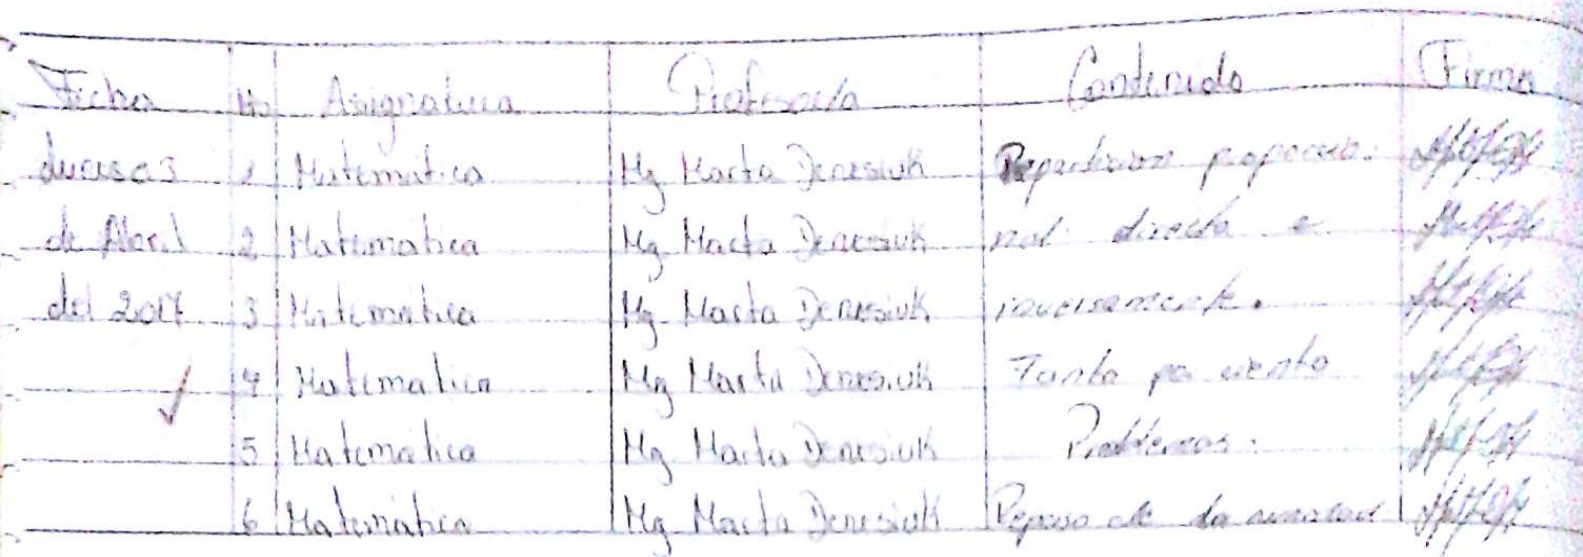 Fecha No Asignatura Profesor/a Contenido Firma
1 Matemática Mg Marta Denesiuk Repartición proporcio-
de Abril 2 Matematica Mg Marta Denesiuk nal directa e
del 2017 3 Matematica Mg Marta Denesiuk inversamente.
4 Matematica Mg Marta Denesiuk Tanto por ciento
5 Matematica Mg Marta Denesiuk Problemas.
6 Matemática Mg Marta Denesiuk Repaso de